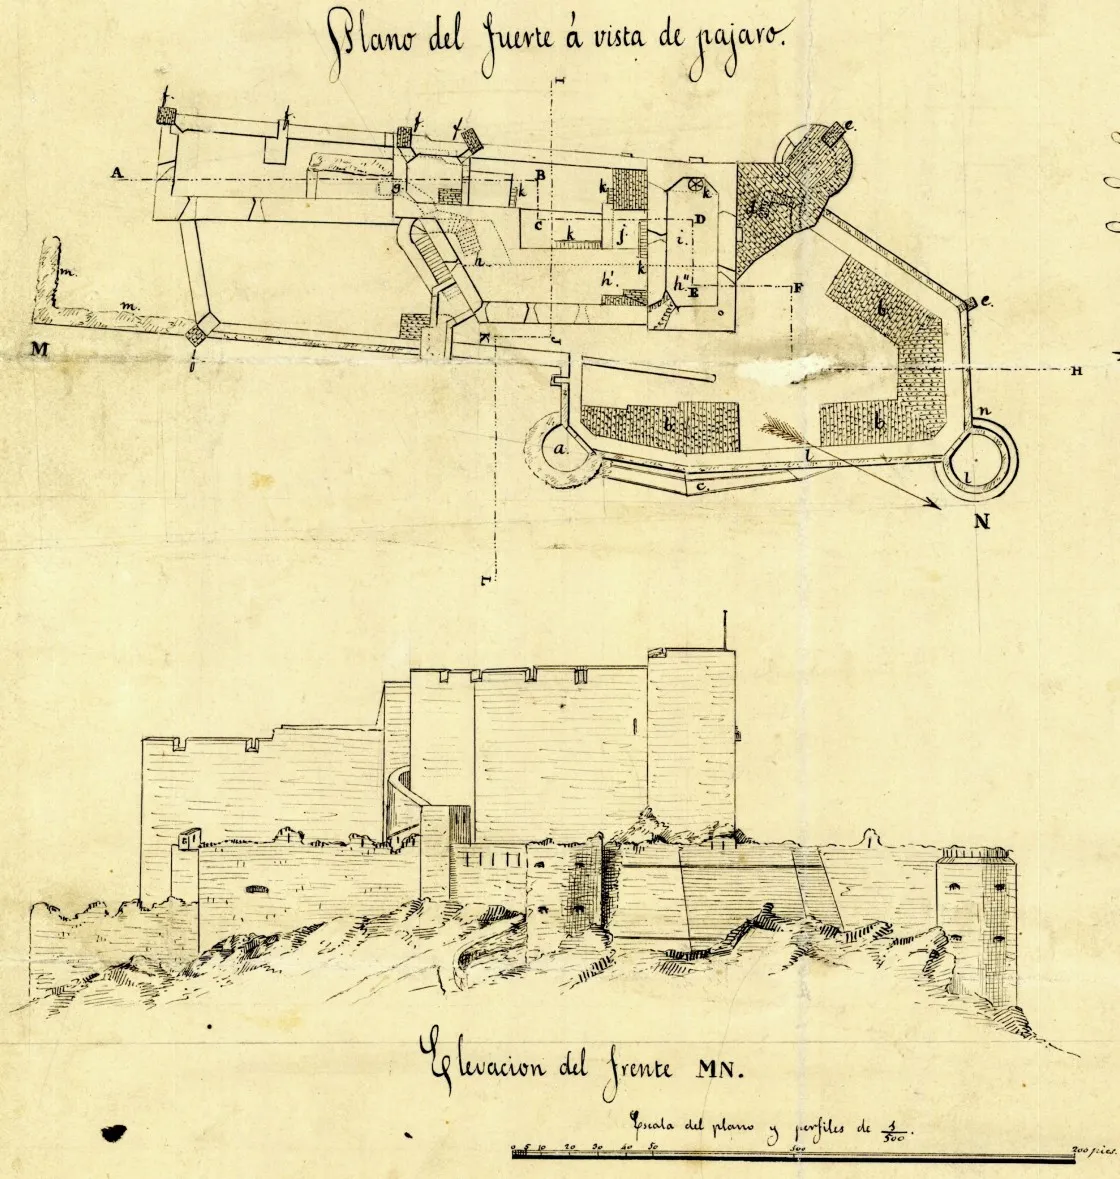 Plano del fuerte á vista de pajaro.
I
f. f. f. f. e.
A B k k k
g
C D
k j. i.
m. h k
m. h'. h'' E F e.
M K J
H
b
n
b b
a. l l
c.
N
L
Elevacion del frente MN.
Escala del plano y perfiles de 1/500.
0 5 10 20 30 40 50 100 200 pies.